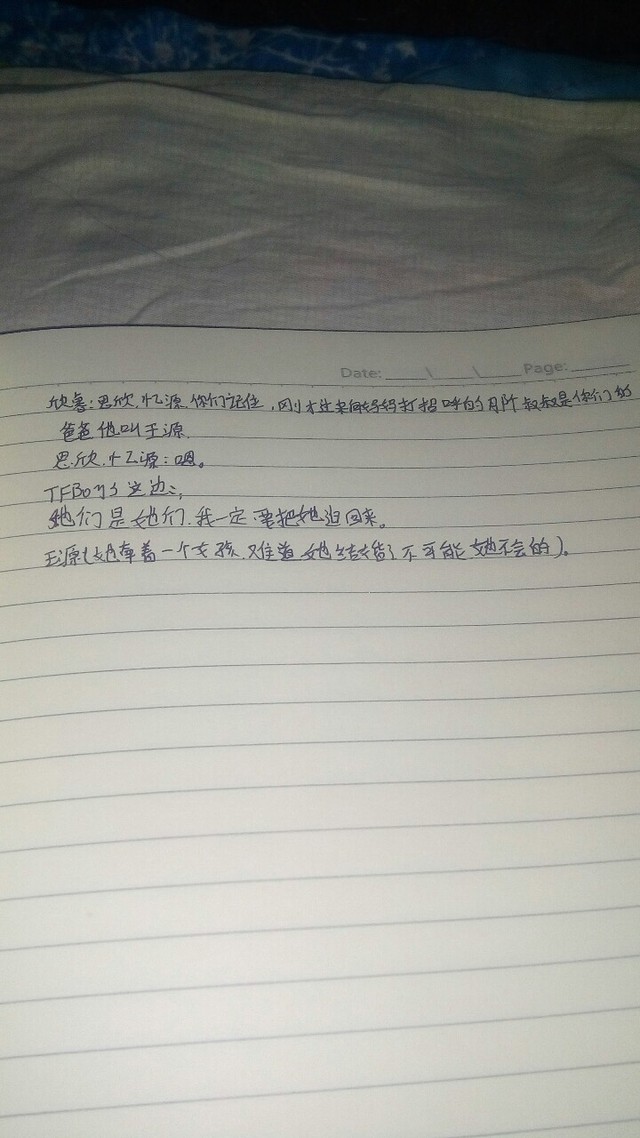 Date: \ \ Page:
欣喜:思欣.忆源.你们记住,刚才过来同妈妈打招呼的那个叔叔是你们的
爸爸他叫王源.
思欣.忆源:嗯。
TFBoys这边:,
她们是她们.我一定要把她追回来。
王源(她牵着一个女孩.难道她结婚了不可能她不会的)。